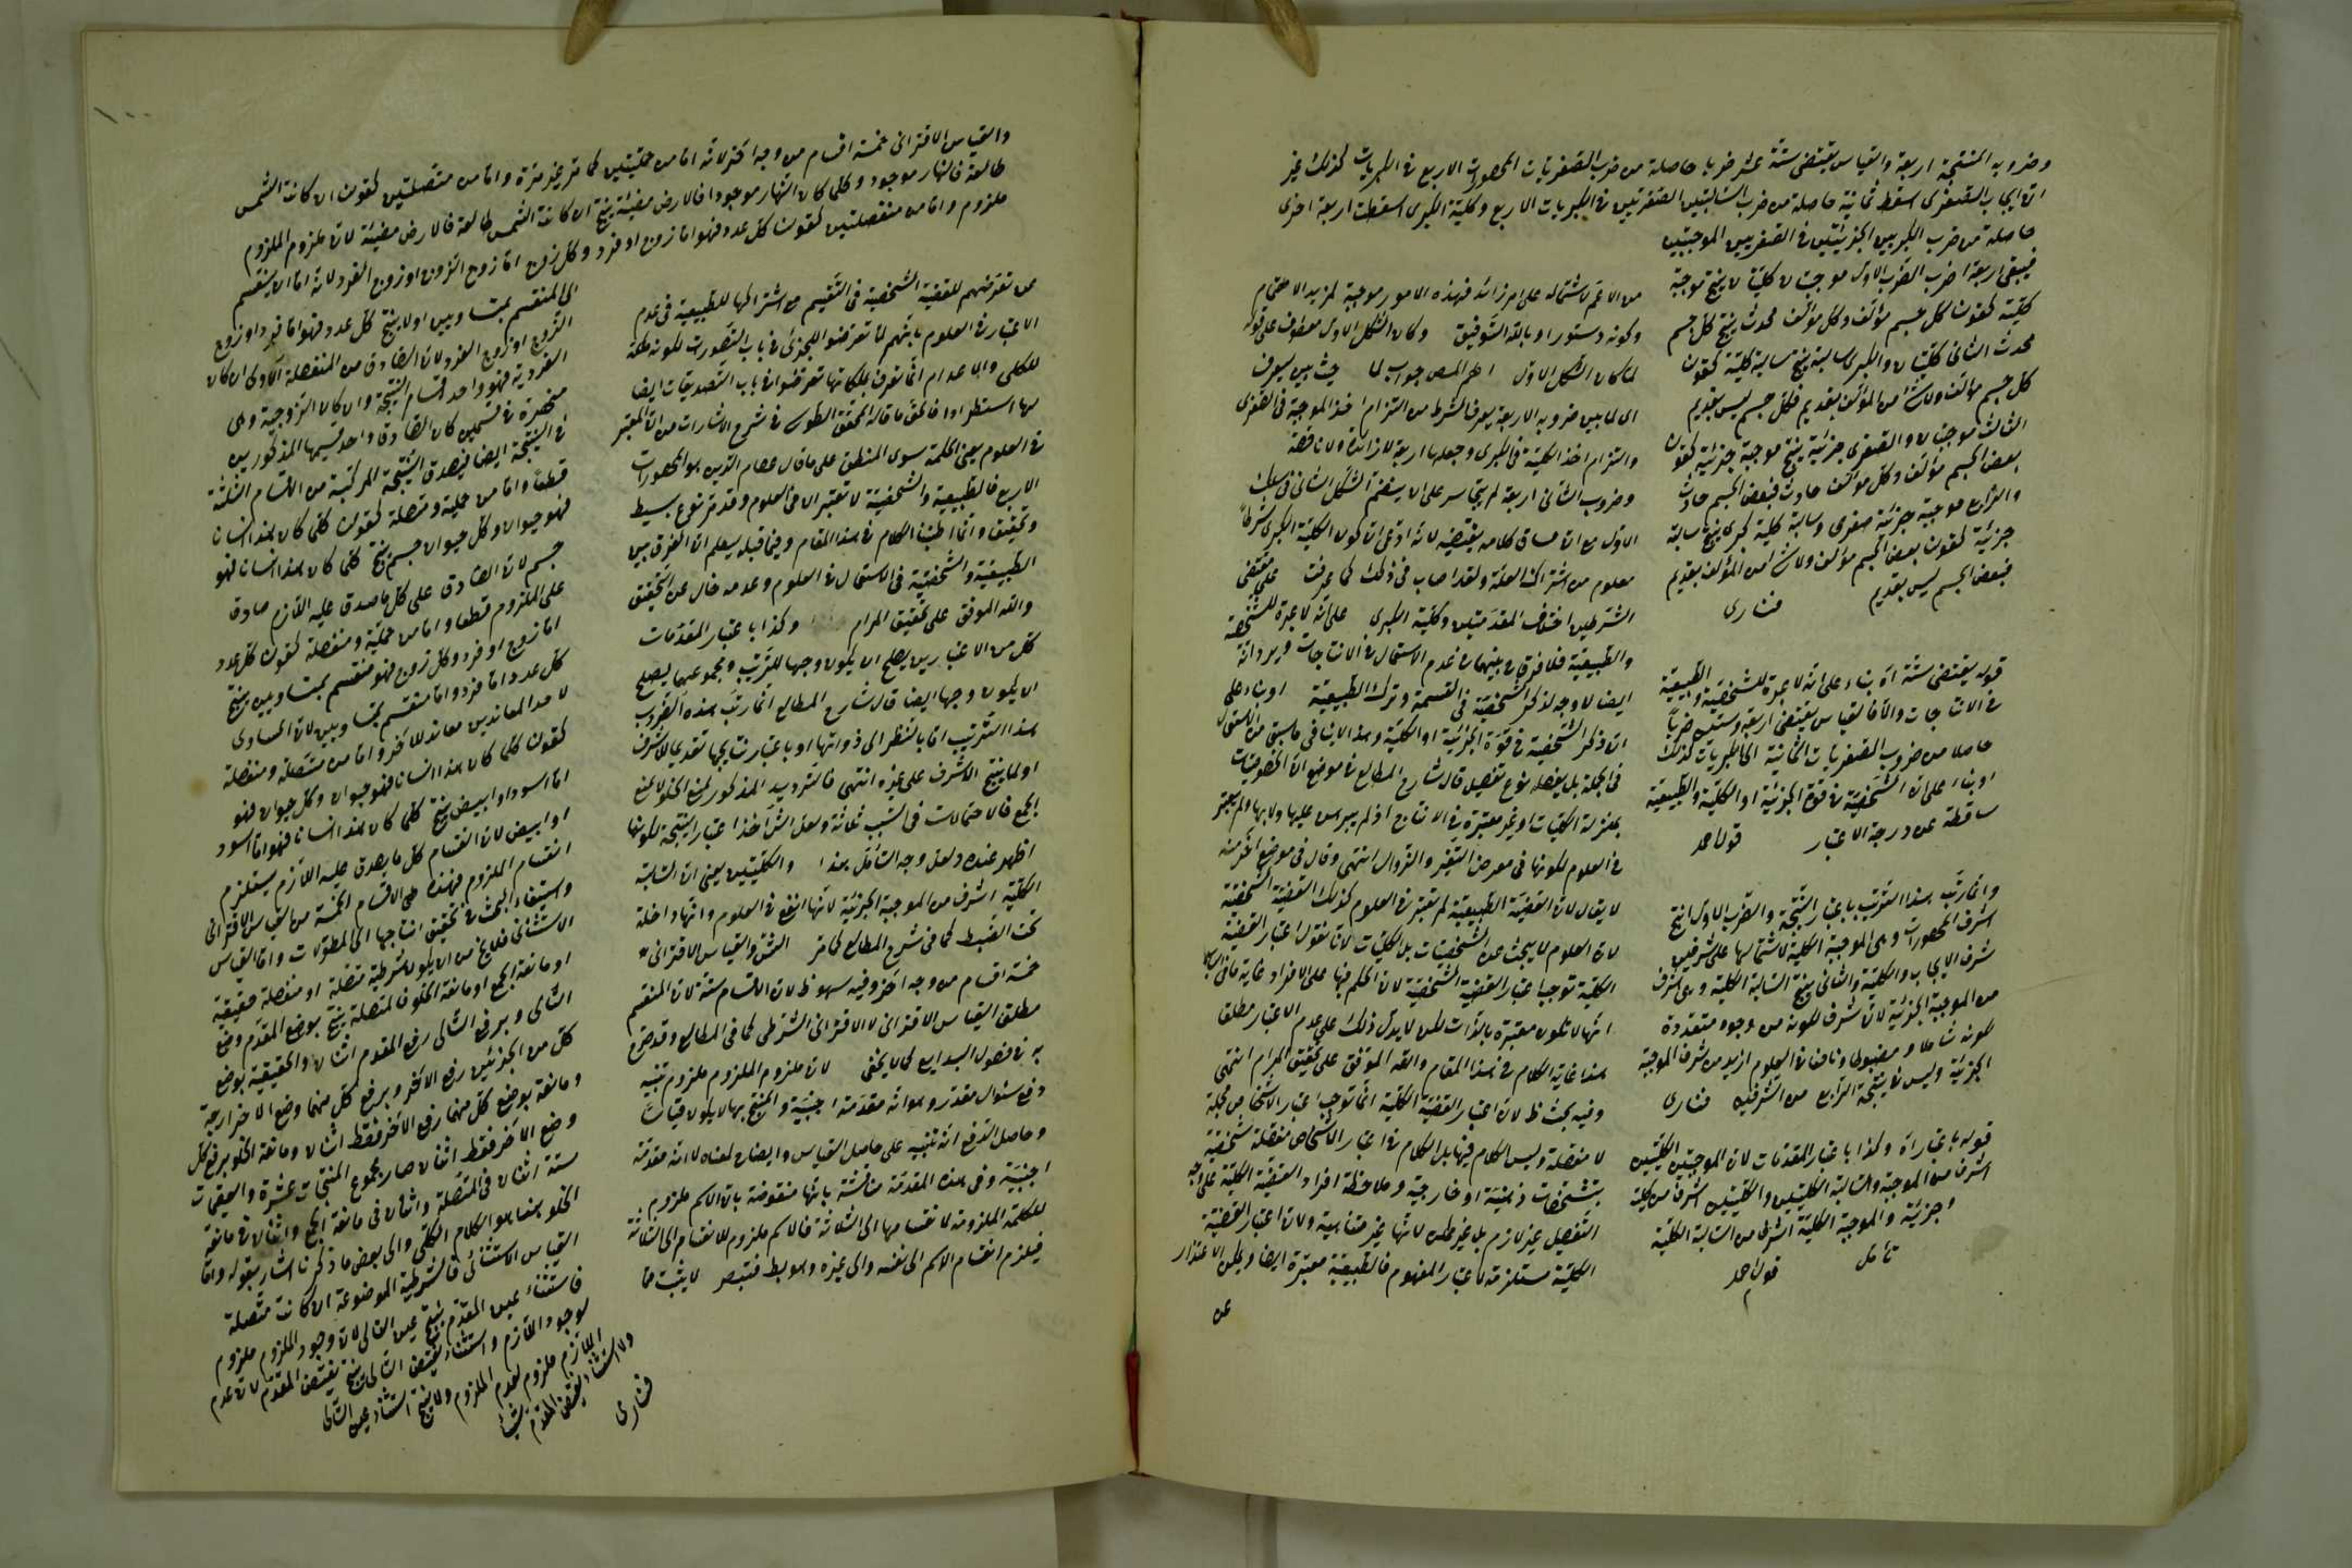 وضروبه المنتجة اربعة والقياس يقتضى ستة عشر ضربا حاصلة من ضرب الصغريات المحصورات الاربع فى الكبريات كذلك غير
ان ايجاب الصغرى اسقط ثمانية حاصلة من ضرب السالبتين الصغريين فى الكبريات الاربع وكلية الكبرى اسقطت اربعة اخرى
حاصلة من ضرب الكبريين الجزئيتين فى الصغريين الموجبتين
فيبقى اربعة اضرب الضرب الاول موجبتان كليتان ينتج موجبة
كلية كقولنا كل جسم مؤلف وكل مؤلف محدث ينتج كل جسم
محدث الثانى كليتان والكبرى سالبة ينتج سالبة كلية كقولنا
كل جسم مؤلف ولا شئ من المؤلف بقديم فكل جسم ليس بقديم
الثالث موجبتان والصغرى جزئية ينتج موجبة جزئية كقولنا
بعض الجسم مؤلف وكل مؤلف حادث فبعض الجسم حادث
والرابع موجبة جزئية صغرى وسالبة كلية كبرى ينتج سالبة
جزئية كقولنا بعض الجسم مؤلف ولا شئ من المؤلف بقديم
فبعض الجسم ليس بقديم فنارى
قوله يقتضى ستة اه بناء على انه لا عبرة للشخصية والطبيعية
فى الانتاجات والا فالقياس يقتضى اربعة وستين ضربا
حاصلا من ضروب الصغريات الثمانية الى الكبريات كذلك
او بناء على ان الشخصية فى قوة الجزئية او الكلية والطبيعية
ساقطة عن درجة الاعتبار قول احمد
وانما رتب هذا الترتيب باعتبار النتيجة والضرب الاول انتج
اشرف المحصورات وهى الموجبة الكلية لاشتمالها على شرفين
شرف الايجاب والكلية والثانى ينتج السالبة الكلية وهى اشرف
من الموجبة الجزئية لان شرف للكونه من وجوه متعددة
كونه شاملا ومضبوطا ونافعا فى العلوم ازيد من شرف الموجبة
الجزئية وليس فى نتيجة الرابع من الشرفين فنارى
قوله باعتبار اه وكذا باعتبار المقدمات لان الموجبتين الكليتين
اشرف من الموجبة والسالبة الكليتين والكليتين اشرف من كلية
وجزئية والموجبة الكلية اشرف من السالبة الكلية
تأمل قول احمد
من الاعم لاشتماله على امر زائد فهذه الامور موجبة لمزيد الاهتمام
وكونه دستورا وبالله التوفيق وكان الشكل الاول معطوف على قوله
لما كان الشكل الاول اهم المص جواب لما حيث بين يعرف
اى لما بين ضروبه الاربعة يعرف الشرط من التزام اخذ الموجبة فى الصغرى
والتزام اخذ الكلية فى الكبرى وجعلها اربعة لا زائدة ولا ناقصة
وضروب الثانى اربعة لم يتجاسر على الا ينضم الشكل الثانى فى سلك
الاول مع ان مساق كلامه يقتضيه لانه ادعى ان كون الكلية الكبرى شرطا
معلوم من اشتراك العلة ولقد اصاب فى ذلك كما عرفت على مقتضى
الشرطين اختلاف المقدمتين وكلية الكبرى على انه لا عبرة للشخصية
والطبيعية فلا فرق بينهما فى عدم الاستعمال فى الانتاجات ويرد انه
ايضا لا وجه لذكر الشخصية فى القسمة وترك الطبيعية او بناء على
ان ذكر الشخصية فى قوة الجزئية او الكلية وهذا لا ينافى ما سبق من
فى الجملة بل يفصله نوع تفصيل قال شارح المطالع فى موضع ان الشخصيات
بمنزلة الكليات او غير معتبرة فى الانتاج اذ لم يبرهن عليها ولا بها ولم يعتبر
فى العلوم لكونها فى معرض التغير والزوال انتهى وقال فى موضع آخر منه
لا يقال لان القضية الطبيعية لم تعتبر فى العلوم كذلك القضية الشخصية
لان العلوم لا يبحث عن الشخصيات بل الكليات لانا نقول اعتبار القضية
الكلية توجب اعتبار القضية الشخصية لان الحكم فيها على الافراد غاية ما فى الباب
انها لا تكون معتبرة بالذات لكن لا يدل ذلك على عدم الاعتبار مطلقا
هذا غاية الكلام فى هذا المقام والله الموفق على تحقيق المرام انتهى
وفيه بحث ظ لان اعتبار القضية الكلية انما توجب اعتبار الاشخاص مجملة
لا مفصلة وليس الكلام فيها بل الكلام فى اعتبار الاشخاص مفصلة شخصية
بتشخصات ذهنية او خارجية وملاحظة افراد القضية الكلية على وجه
التفصيل غير لازم بل غير ممكن لانها غير متناهية ولان اعتبار القضية
الكلية مستلزمة لاعتبار المفهوم فالطبيعية معتبرة ايضا ويمكن الاعتذار
عن
والقياس الاقترانى خمسة اقسام من وجه آخر لانه اما من حمليتين كما مر غير مرة واما من متصلتين كقولنا ان كانت الشمس
طالعة فالنهار موجود وكلما كان النهار موجودا فالارض مضيئة ينتج ان كانت الشمس طالعة فالارض مضيئة لان ملزوم الملزوم
ملزوم واما من منفصلتين كقولنا كل عدد فهو اما زوج او فرد وكل زوج اما زوج الزوج او زوج الفرد لانه اما ان ينقسم
عن تعرضهم للقضية الشخصية فى التقسيم مع اشتراكها للطبيعية فى عدم
الاعتبار فى العلوم بانهم لما تعرضوا للجزئى فى باب التصورات لكونه ملكة
للكلى والاعدام انما تعرف بملكاتها تعرضوا فى باب التصديقات ايضا
بها استطرادا فالحق ما قاله المحقق الطوسى فى شرح الاشارات من ان المعتبر
فى العلوم يعنى الحكمة سوى المنطق على ما قال عصام الدين هو المحصورات
الاربع فالطبيعية والشخصية لا تعتبر الا فى العلوم وقد مر نوع بسيط
وتحقيق وانما اطنبنا الكلام فى هذا المقام وفيما قبله ليعلم ان الفرق بين
الطبيعية والشخصية فى الاستعمال فى العلوم وعدمه خال عن التحقيق
والله الموفق على تحقيق المرام وكذا باعتبار المقدمات
كل من الاعتبارين يصلح ان يكون وجها للترتيب ومجموعهما يصلح
ان يكون وجها ايضا قال شارح المطالع انما رتب هذه الضروب
هذا الترتيب اما بالنظر الى ذواتها او باعتبار نتايجها تقديما للاشرف
او لما ينتج الاشرف على غيره انتهى فالترديد المذكور لمنع الخلو لا لمنع
الجمع فالاحتمالات فى السبب ثلثة ولعل الش اخذ اعتبار النتيجة لكونها
اظهر عنده ولعل وجه التأمل هذا والكليتين يعنى ان السالبة
الكلية اشرف من الموجبة الجزئية لانها انفع فى العلوم وانها داخلة
تحت الضبط كما فى شرح المطالع كما مر المش والقياس الاقترانى
خمسة اقسام من وجه آخر وفيه سهو ظ لان الاقسام ستة لان المنقسم
مطلق القياس الاقترانى لا الاقترانى الشرطى كما فى المطالع وقد صرح
به فى فصول البدايع كما لا يخفى لان ملزوم الملزوم ملزوم تنبيه
دفع سئوال مقدر وهو انه مقدمة اجنبية والمنتج بها لا يكون قياسا
وحاصل الدفع انه تنبيه على حاصل القياس وايضاح لمعناه لا انه مقدمة
اجنبية وفى هذه المقدمة مناقشة بانها منقوضة بان الاسم ملزوم
للكلمة الملزومة لانقسامها الى الثلاثة فالاسم ملزوم للانقسام الى الثلاثة
فيلزم انقسام الاسم الى نفسه والى غيره وهو بط فتبصر لا يثبت مما
الى المنقسم بمتساويين او لا ينتج كل عدد فهو اما فرد او زوج
الزوج او زوج الفرد لان الصادق من المنفصلة الاولى ان كان
الفردية فهو واحد اقسام النتيجة وان كان الزوجية وهى
منحصرة فى قسمين كان الصادق واحد قسيمها المذكورين
فى النتيجة ايضا فيصدق النتيجة المركبة من الاقسام الثلثة
قطعا واما من حملية ومتصلة كقولنا كلما كان هذا انسانا
فهو حيوان وكل حيوان جسم ينتج كلما كان هذا انسانا فهو
جسم لان الصادق على كل ما صدق عليه اللازم صادق
على الملزوم قطعا واما من حملية ومنفصلة كقولنا كل عدد
اما زوج او فرد وكل زوج فهو منقسم بمتساويين ينتج
كل عدد اما فرد واما منقسم بمتساويين لان المساوى
لاحد المعاندين معاند للآخر واما من متصلة ومنفصلة
كقولنا كلما كان هذا انسانا فهو حيوان وكل حيوان فهو
اما اسود او ابيض ينتج كلما كان هذا انسانا فهو اما اسود
او ابيض لان انقسام كل ما يصدق عليه اللازم يستلزم
انقسام الملزوم فهذه هى الاقسام الخمسة من القياس الاقترانى
واستيفاء البحث فى تحقيق انتاجها الى المطولات واما القياس
الاستثنائى فلا يخ من ان يكون شرطية متصلة او منفصلة حقيقية
او مانعة الجمع او مانعة الخلو فالمتصلة ينتج بوضع المقدم وضع
التالى وبرفع التالى رفع المقدم اثنان والحقيقية بوضع
كل من الجزئين رفع الآخر وبرفع كل منهما وضع الاخر اربعة
ومانعة بوضع كل منهما رفع الآخر فقط اثنان ومانعة الخلو برفع كل
وضع الآخر فقط اثنان صار مجموع المنتجات عشرة والعقيمات
ستة اثنان فى المتصلة واثنان فى مانعة الجمع واثنان فى مانعة
الخلو هذا هو الكلام الكلى والى بعض ما ذكرنا اشار بقوله واما
القياس الاستثنائى فالشرطية الموضوعة ان كانت متصلة
فاستثناء عين المقدم ينتج عين التالى لان وجود الملزوم ملزوم
لوجود اللازم واستثناء نقيض التالى ينتج نقيض المقدم لان عدم
اللازم ملزوم لعدم الملزوم ولا ينتج استثناء عين التالى
ولا استثناء نقيض المقدم شيئا
فنارى